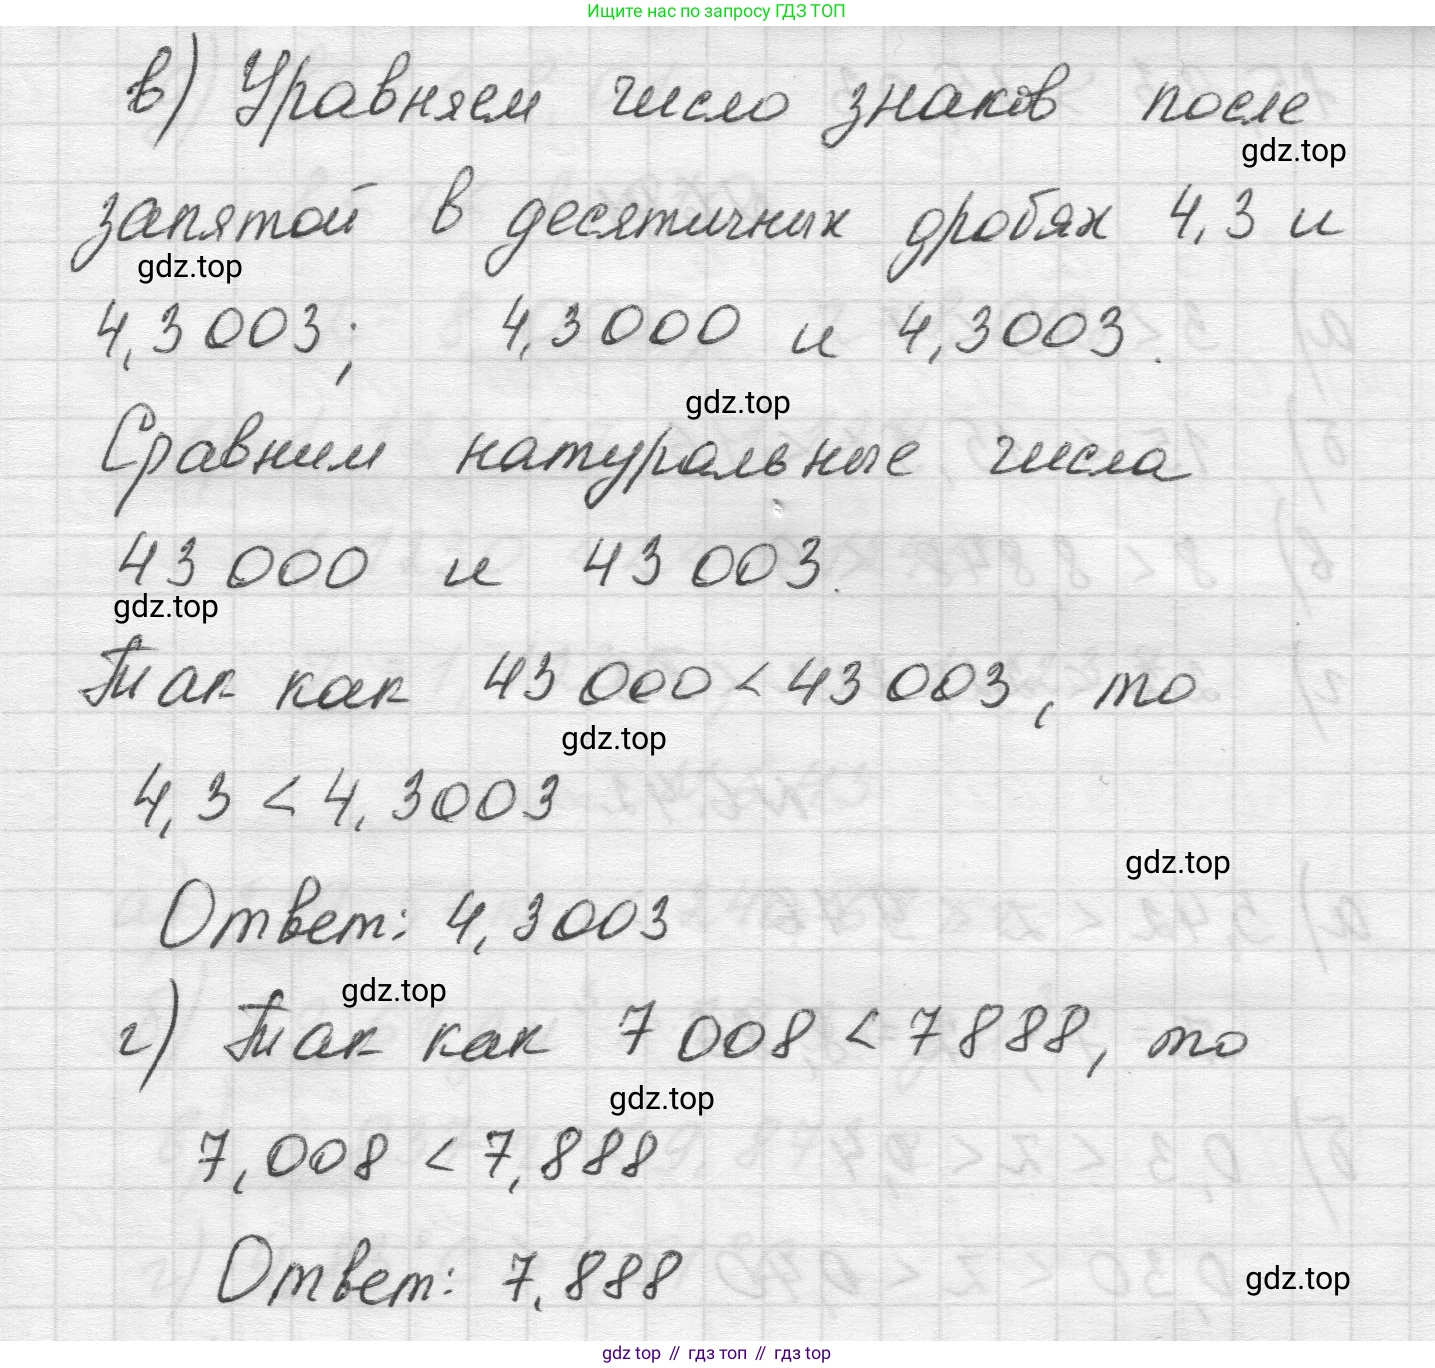 Ищите нас по запросу ГДЗ ТОП
в) Уравняем число знаков после
gdz.top
запятой в десятичных дробях 4,3 и
gdz.top
4,3003; 4,3000 и 4,3003.
gdz.top
Сравним натуральные числа
43 000 и 43 003.
gdz.top
Так как 43 000 < 43 003, то
gdz.top
4,3 < 4,3003
gdz.top
Ответ: 4,3003
gdz.top
г) Так как 7 008 < 7 888, то
gdz.top
7,008 < 7,888
Ответ: 7,888
gdz.top
gdz top // гдз топ // гдз top